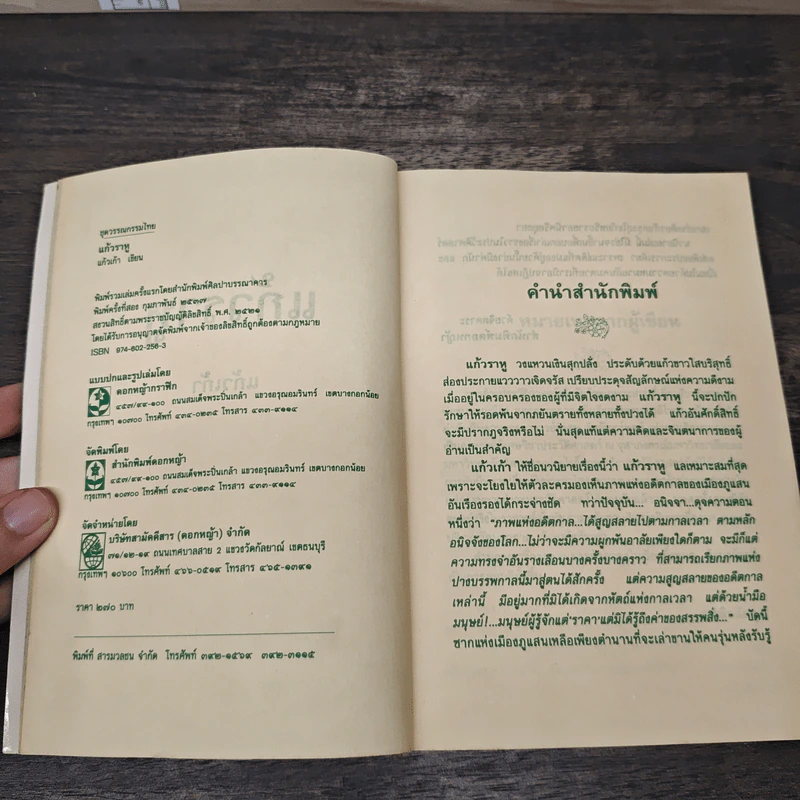 ชุดวรรณกรรมไทย
แก้วราหู
แก้วเก้า เขียน
พิมพ์รวมเล่มครั้งแรกโดยสำนักพิมพ์ศิลปาบรรณาคาร
พิมพ์ครั้งที่สอง กุมภาพันธ์ ๒๕๓๗
สงวนสิทธิ์ตามพระราชบัญญัติลิขสิทธิ์ พ.ศ. ๒๕๒๑
โดยได้รับการอนุญาตจัดพิมพ์จากเจ้าของลิขสิทธิ์ถูกต้องตามกฎหมาย
ISBN 974-602-256-3
แบบปกและรูปเล่มโดย
ดอกหญ้ากราฟิก
๔๕๗/๙๙-๑๐๐ ถนนสมเด็จพระปิ่นเกล้า แขวงอรุณอมรินทร์ เขตบางกอกน้อย
กรุงเทพฯ ๑๐๗๐๐ โทรศัพท์ ๔๓๔-๐๒๓๔ โทรสาร ๔๓๓-๙๑๑๔
จัดพิมพ์โดย
สำนักพิมพ์ดอกหญ้า
๔๕๗/๙๙-๑๐๐ ถนนสมเด็จพระปิ่นเกล้า แขวงอรุณอมรินทร์ เขตบางกอกน้อย
กรุงเทพฯ ๑๐๗๐๐ โทรศัพท์ ๔๓๔-๐๒๓๕ โทรสาร ๔๓๓-๙๑๑๔
จัดจำหน่ายโดย
บริษัทสามัคคีสาร (ดอกหญ้า) จำกัด
๗๑/๑๒-๑๙ ถนนเทศบาลสาย 2 แขวงวัดกัลยาณ์ เขตธนบุรี
กรุงเทพฯ ๑๐๖๐๐ โทรศัพท์ ๔๖๖-๐๕๑๙ โทรสาร ๔๖๕-๑๓๙๑
ราคา ๒๗๐ บาท
พิมพ์ที่ สารมวลชน จำกัด โทรศัพท์ ๓๙๒-๑๕๖๙ ๓๙๒-๓๑๑๕
คำนำสำนักพิมพ์
แก้วราหู วงแหวนเงินสุกปลั่ง ประดับด้วยแก้วขาวใสบริสุทธิ์
ส่องประกายแวววาวเจิดจรัส เปรียบประดุจสัญลักษณ์แห่งความดีงาม
เมื่ออยู่ในครอบครองของผู้ที่มีจิตใจงดงาม แก้วราหู นี้จะปกปัก
รักษาให้รอดพ้นจากภยันตรายทั้งหลายทั้งปวงได้ แก้วอันศักดิ์สิทธิ์
จะมีปรากฏจริงหรือไม่ นั่นสุดแท้แต่ความคิดและจินตนาการของผู้
อ่านเป็นสำคัญ
แก้วเก้า ให้ชื่อนวนิยายเรื่องนี้ว่า แก้วราหู แลเหมาะสมที่สุด
เพราะจะโยงใยให้ตัวละครมองเห็นภาพแห่งอดีตกาลของเมืองภูแสน
อันเรืองรองได้กระจ่างชัด ทว่าปัจจุบัน... อนิจจา...ดุจความตอน
หนึ่งว่า "ภาพแห่งอดีตกาล...ได้สูญสลายไปตามกาลเวลา ตามหลัก
อนิจจังของโลก...ไม่ว่าจะมีความผูกพันอาลัยเพียงใดก็ตาม จะมีก็แต่
ความทรงจำอันรางเลือนบางครั้งบางคราว ที่สามารถเรียกภาพแห่ง
ปางบรรพกาลนี้มาสู่ตนได้สักครั้ง แต่ความสูญสลายของอดีตกาล
เหล่านี้ มีอยู่มากที่มิได้เกิดจากหัตถ์แห่งกาลเวลา แต่ด้วยน้ำมือ
มนุษย์!...มนุษย์ผู้รู้จักแต่'ราคา'แต่มิได้รู้ถึงค่าของสรรพสิ่ง..." บัดนี้
ซากแห่งเมืองภูแสนเหลือเพียงตำนานที่จะเล่าขานให้คนรุ่นหลังรับรู้